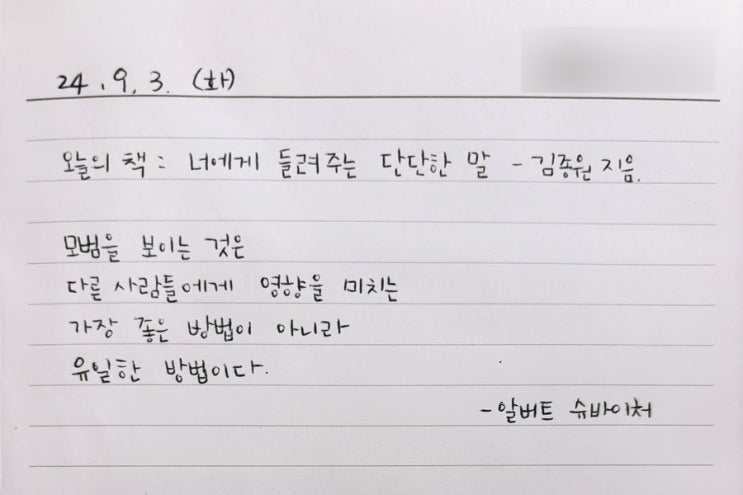 24. 9. 3. (화)
오늘의 책 : 너에게 들려주는 단단한 말 - 김종원 지음.
모범을 보이는 것은
다른 사람들에게 영향을 미치는
가장 좋은 방법이 아니라
유일한 방법이다.
- 알버트 슈바이처